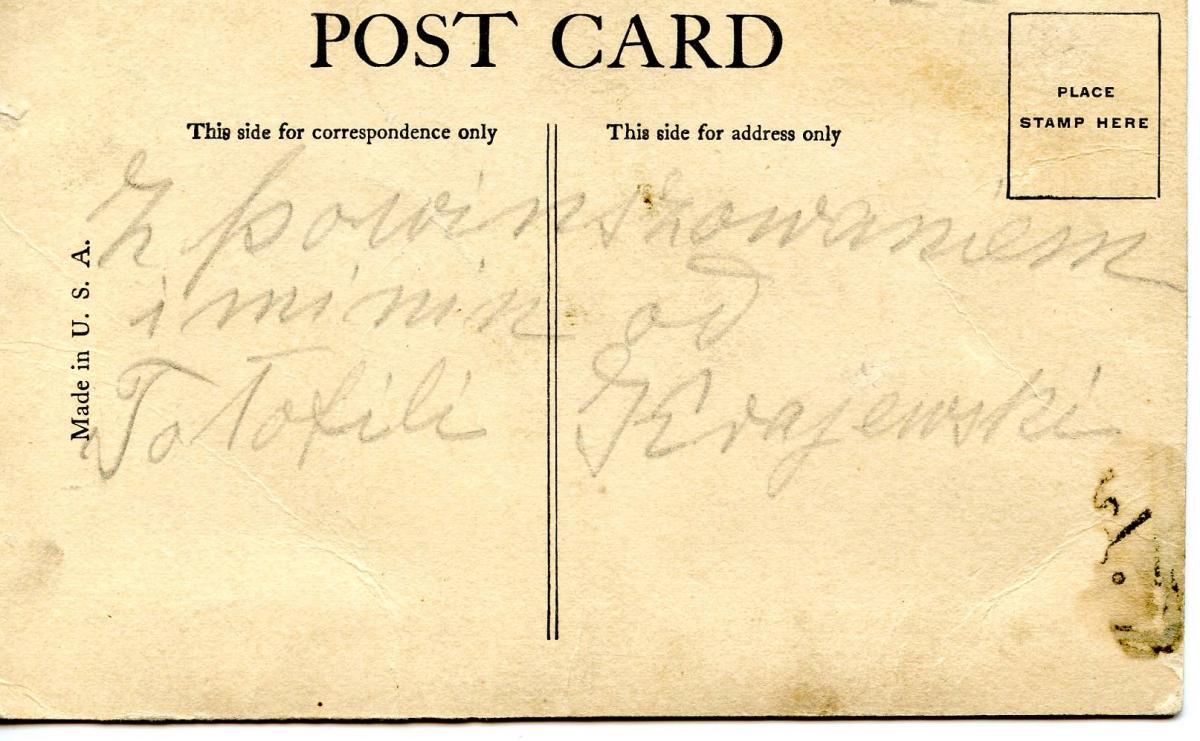 POST CARD
PLACE
STAMP HERE
This side for correspondence only
This side for address only
Made in U. S. A.
Z powinszowaniem
iminin od
Totofili Krajewski